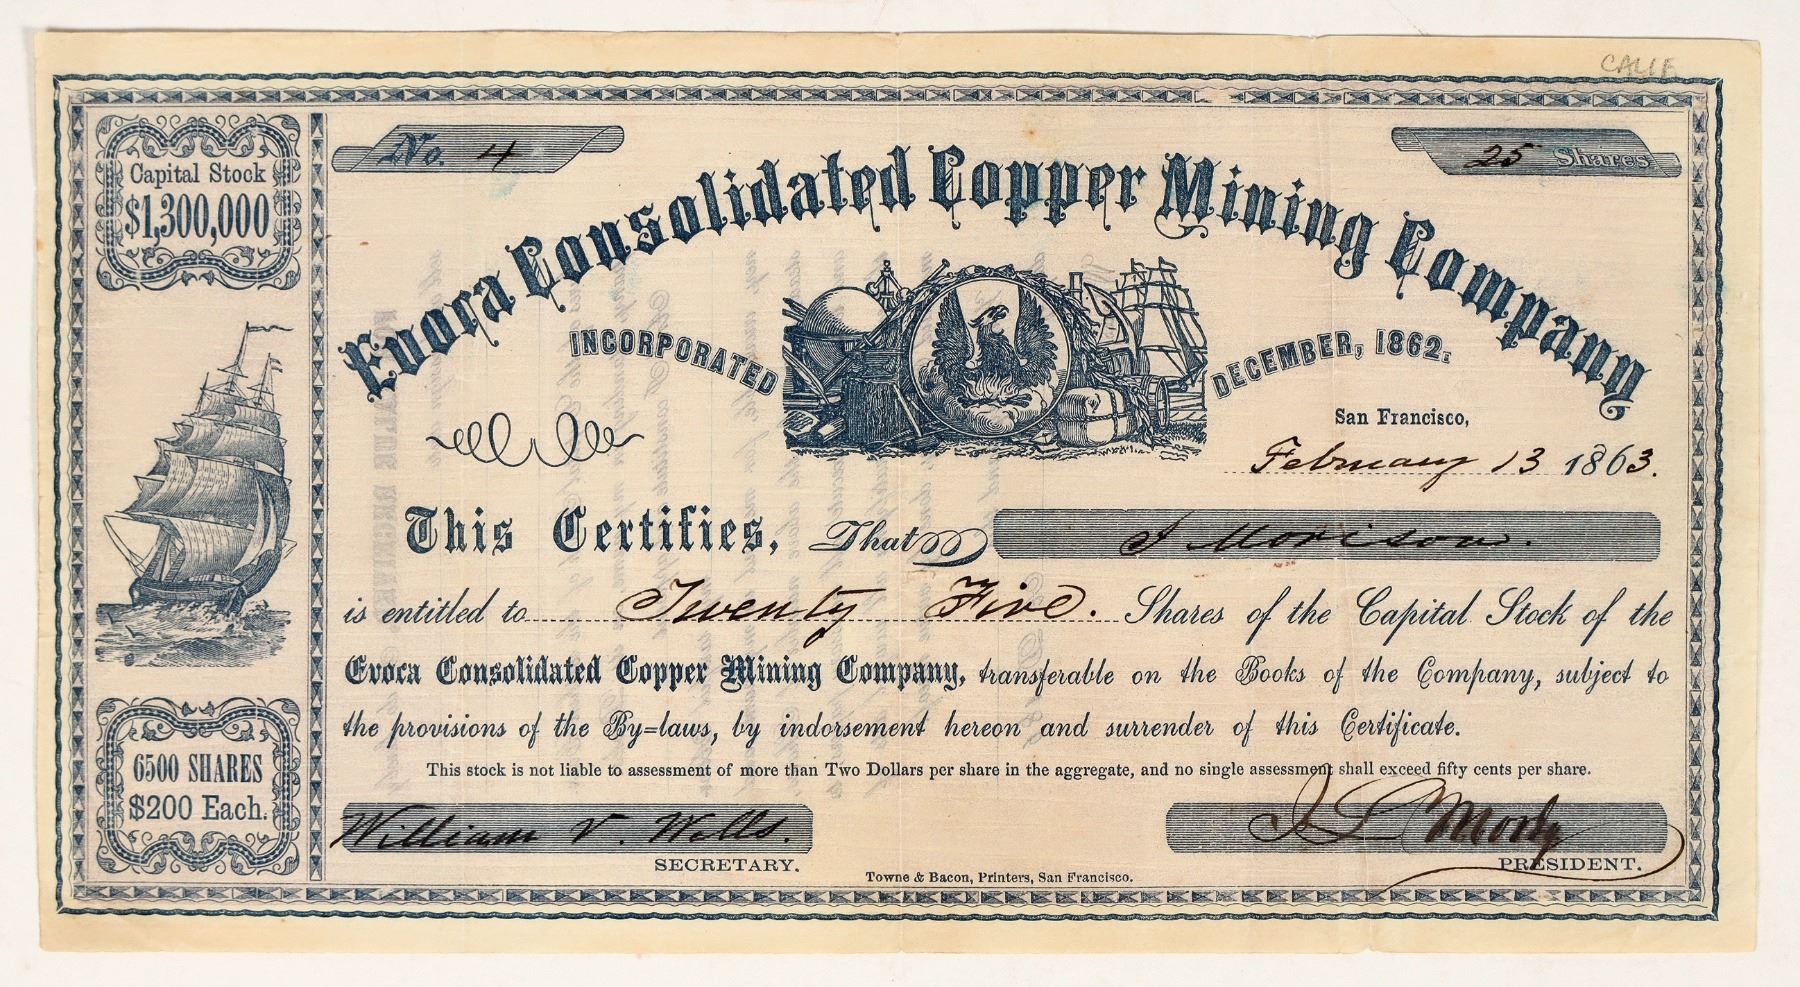 CALIF
Capital Stock
$1,300,000
No. 4
25 Shares
Evoca Consolidated Copper Mining Company
INCORPORATED DECEMBER, 1862.
San Francisco,
February 13 1863.
This Certifies, That J Morison.
is entitled to Twenty Five. Shares of the Capital Stock of the
Evoca Consolidated Copper Mining Company, transferable on the Books of the Company, subject to
the provisions of the By=laws, by indorsement hereon and surrender of this Certificate.
This stock is not liable to assessment of more than Two Dollars per share in the aggregate, and no single assessment shall exceed fifty cents per share.
6500 SHARES
$200 Each.
William V. Wells.
SECRETARY.
PRESIDENT.
Towne & Bacon, Printers, San Francisco.